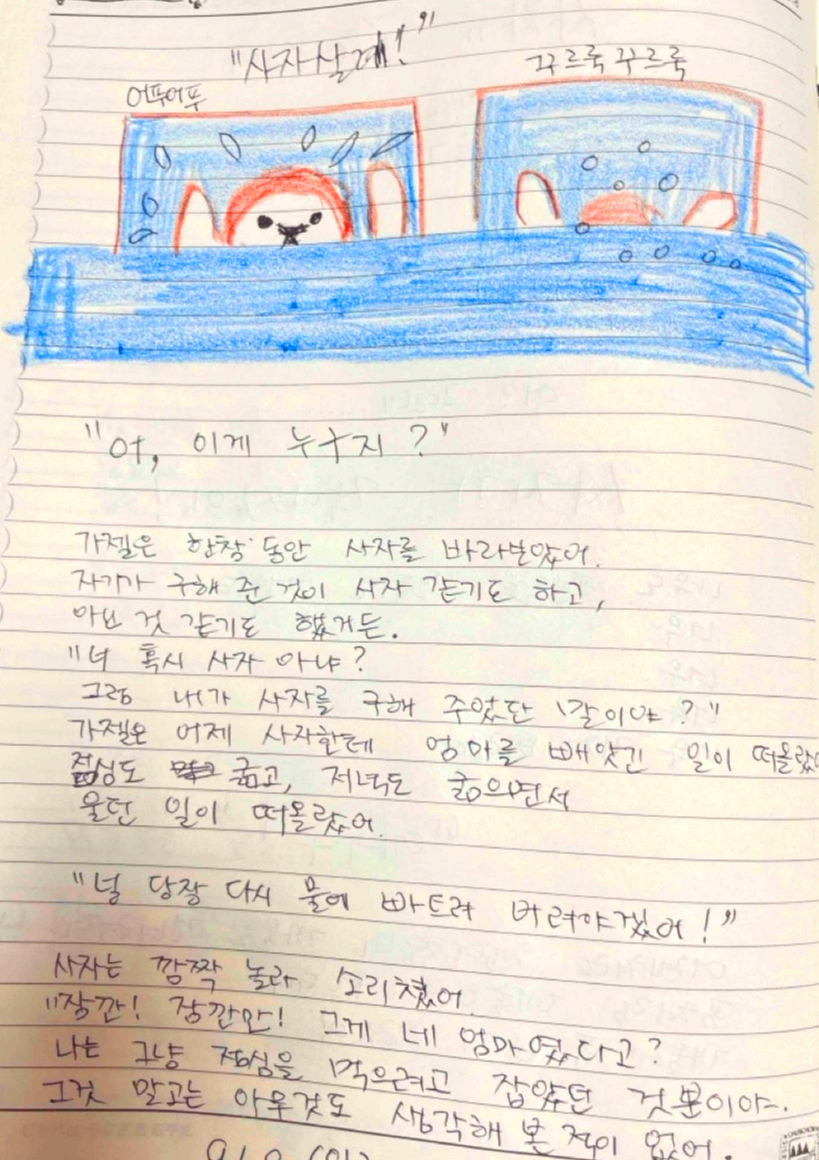 "사자살려!"
어푸어푸
꾸르륵 꾸르륵
"어, 이게 누구지?"
가젤은 한참 동안 사자를 바라보았어.
자기가 구해 준 것이 사자 같기도 하고,
아닌 것 같기도 했거든.
"너 혹시 사자 아냐?
그럼 내가 사자를 구해 주었단 말이야?"
가젤은 어제 사자한테 엄마를 빼앗긴 일이 떠올랐어
점심도 굶고, 저녁도 굶으면서
울던 일이 떠올랐어.
"널 당장 다시 물에 빠트려 버려야겠어!"
사자는 깜짝 놀라 소리쳤어.
"잠깐! 잠깐만! 그게 네 엄마였다고?
나는 그냥 점심을 먹으려고 잡았던 것뿐이야.
그것 말고는 아무것도 생각해 본 적이 없어.